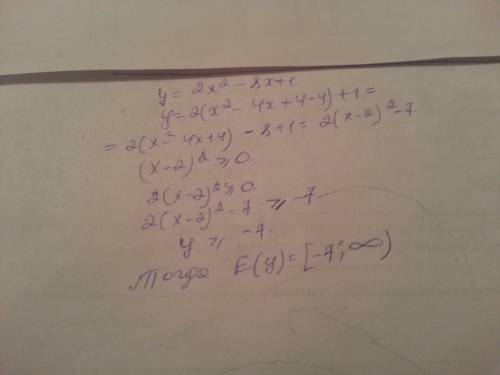 y = 2x² - 8x+1.
y = 2(x² - 4x + 4-4) + 1 =
= 2(x² 4x+4) - 8+1 = 2(x-2)² - 7.
(x-2)² ⩾ 0.
2(x-2)² ⩾ 0.
2(x-2)² - 7 ⩾ -7.
y ⩾ -7.
Тогда E(y) = [-7; ∞)